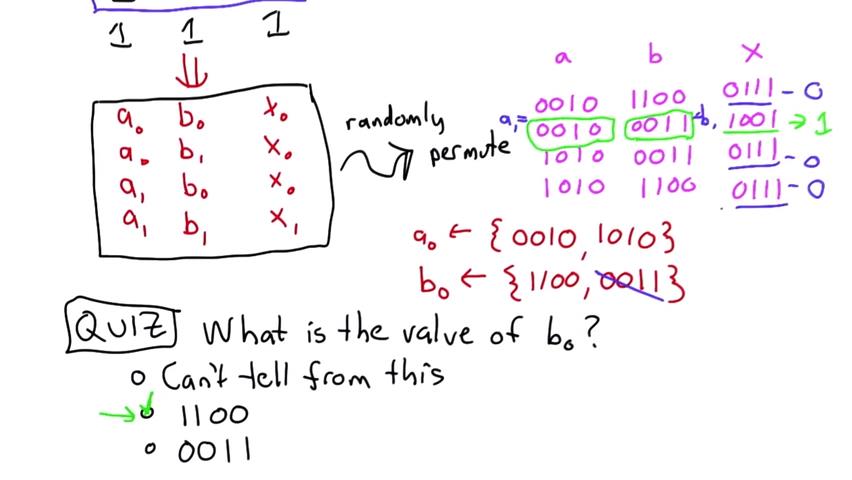 1 1 1
a₀ b₀ x₀
a₀ b₁ x₀
a₁ b₀ x₀
a₁ b₁ x₁
randomly
permute
a b x
0010 1100 0111 - 0
a₁= 0010 0011 b₁ 1001 → 1
1010 0011 0111 - 0
1010 1100 0111 - 0
a₀ ← {0010, 1010}
b₀ ← {1100, 0011}
QUIZ What is the value of b₀?
Can't tell from this
1100
0011